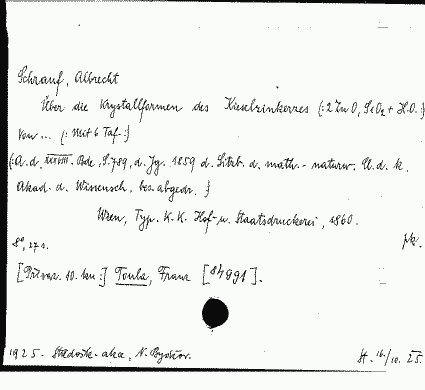 Schrauf, Albrecht
Über die Krystallformen des Kieselzinkerzes (: 2 Zn O, Si O2 + H.O. :)
von ... (: Mit 6 Taf. :)
(: A. d. XXXVIII. Bde, S. 789, d. Jg. 1859 d. Sitzb. d. math. - naturw. Cl. d. k.
Akad. d. Wissensch. bes. abgedr. :)
Wien, Typ. K. K. Hof- u. Staatsdruckerei, 1860.
8°, 27 s.
[Přívaz. 10. ku :] Toula, Franz [
1925. N. Bydžov.
St. 16/10. 25.